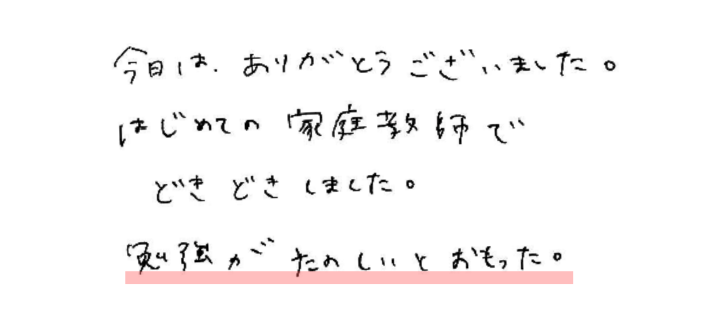 今日は、ありがとうございました。
はじめての家庭教師で
どきどきしました。
勉強がたのしいとおもった。